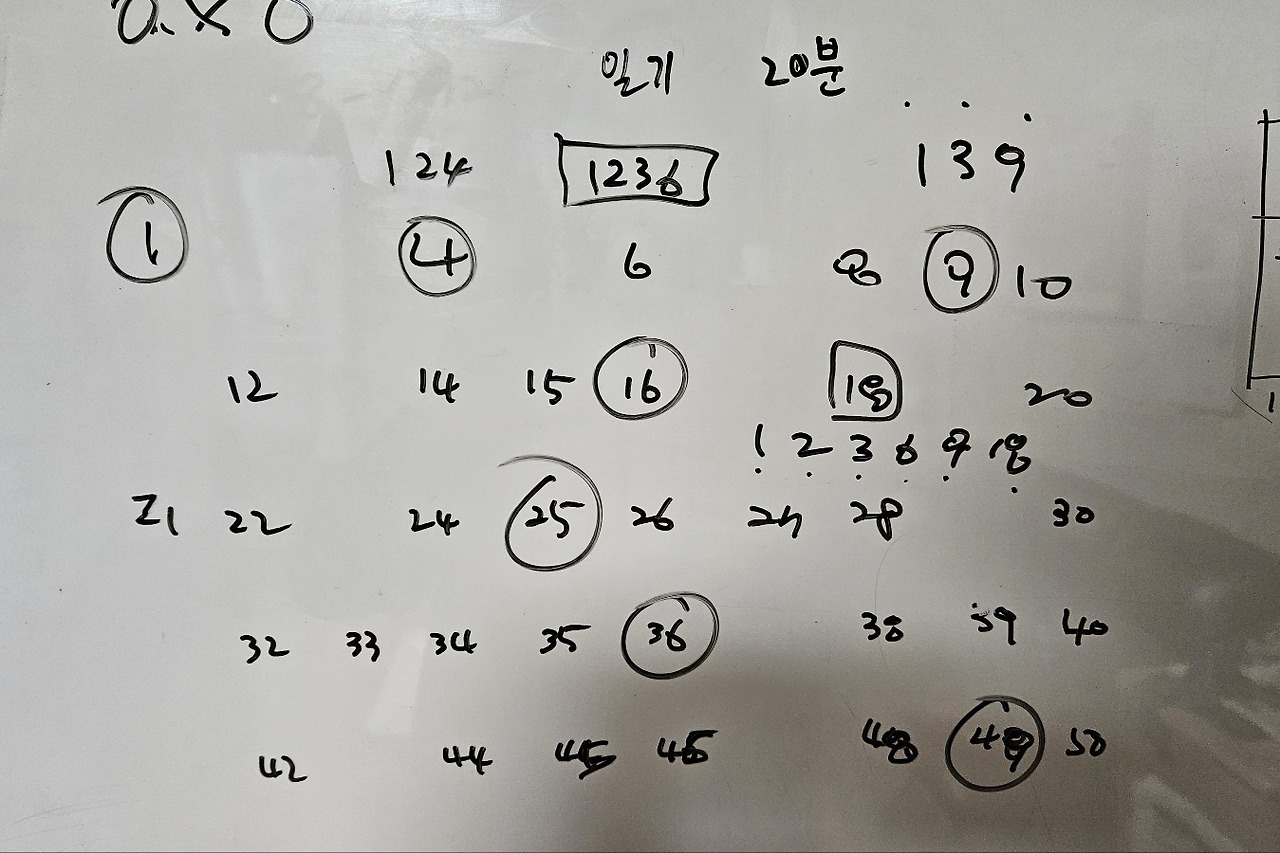 0. x 0
일기 20분
124 1236 139
1 4 6 8 9 10
12 14 15 16 18 20
1 2 3 6 9 18
21 22 24 25 26 27 28 30
32 33 34 35 36 38 39 40
42 44 45 46 48 49 50
1